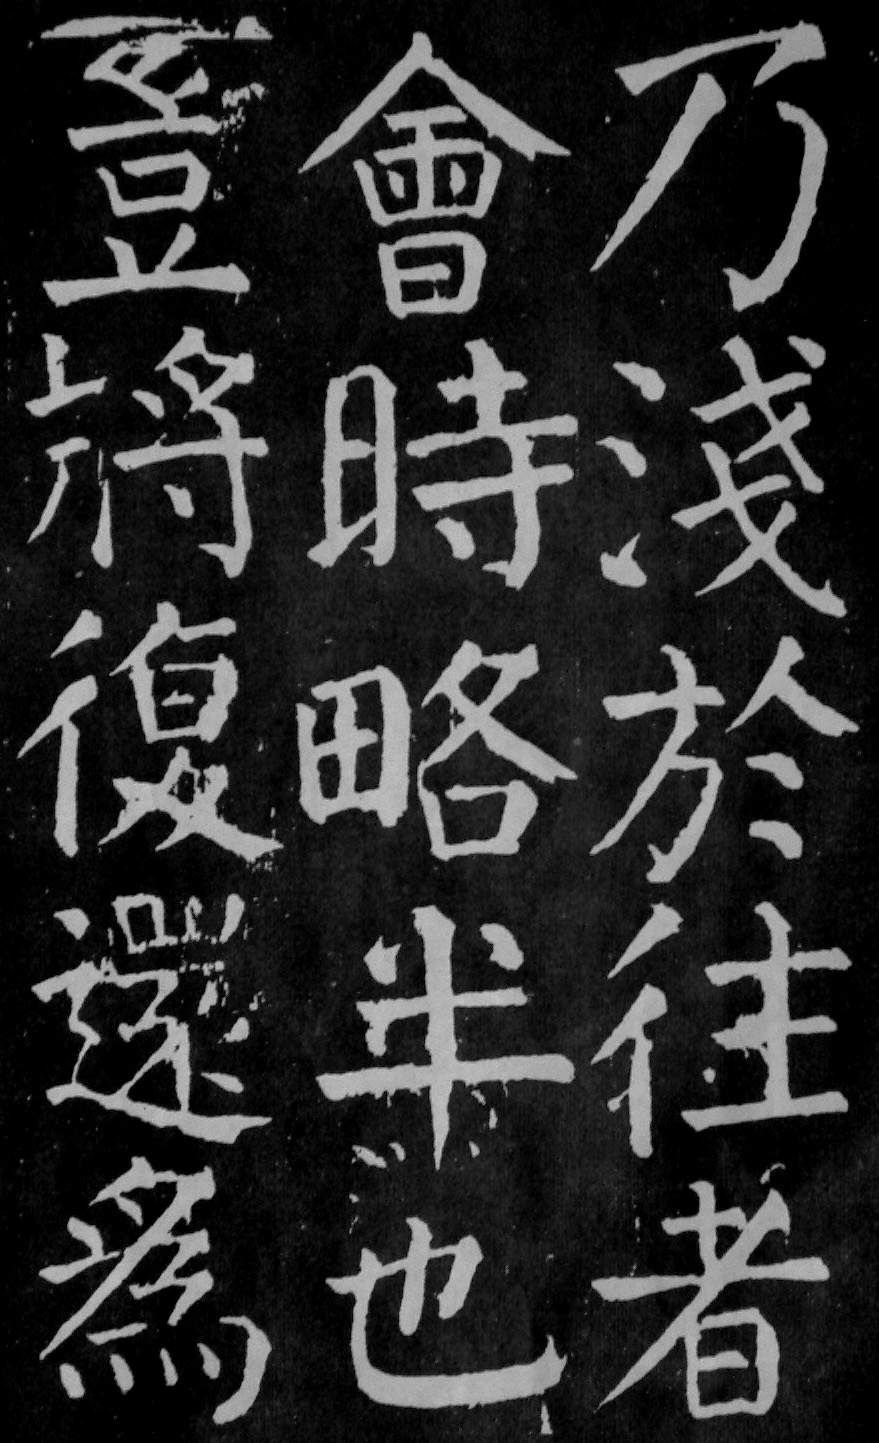 乃淺於往者
會時略半也
豈將復還為